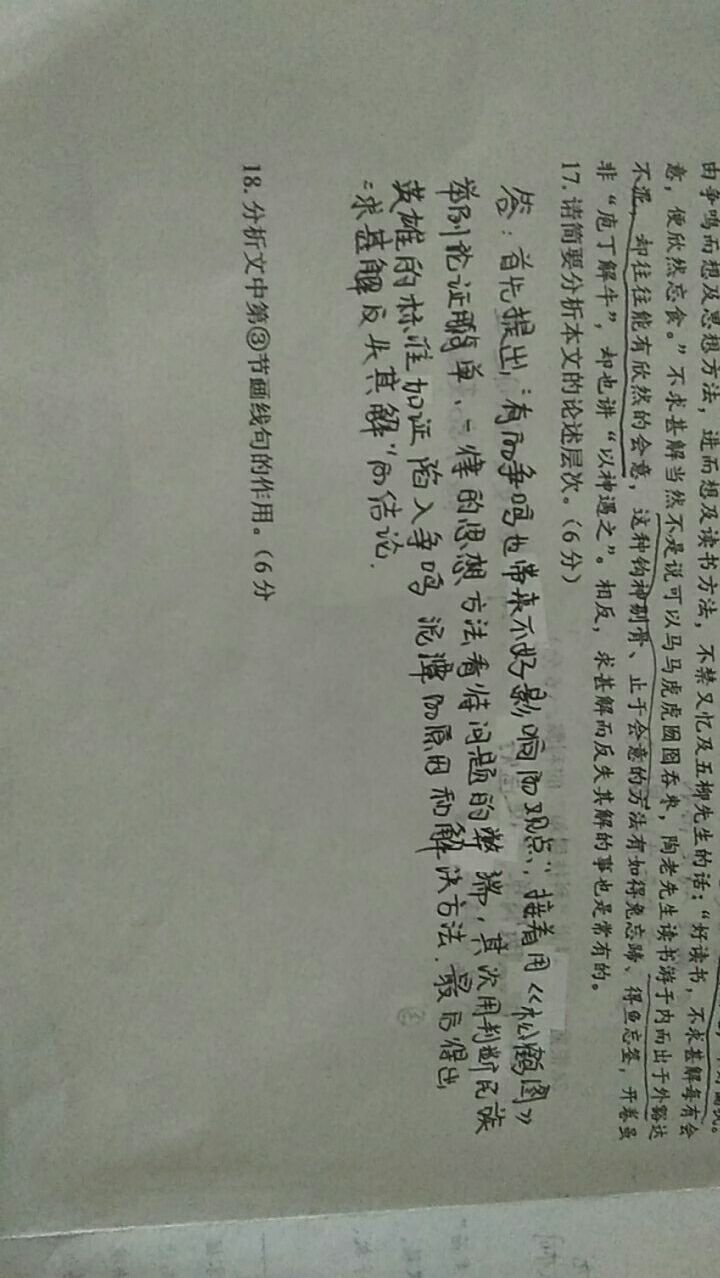 由争鸣而想及思想方法，进而想及读书方法，不禁又忆及五柳先生的话：“好读书，不求甚解每有会
意，便欣然忘食。”不求甚解当然不是说可以马马虎虎囫囵吞枣，陶老先生读书游于内而出于外豁达
不泥，却往往能有欣然的会意，这种钩神剔骨、止于会意的方法有如得兔忘蹄、得鱼忘筌，开卷虽
非“庖丁解牛”，却也讲“以神遇之”。相反，求甚解而反失其解的事也是常有的。
17. 请简要分析本文的论述层次。（6分）
答：首先提出“有的争鸣也带来不好影响的观点”，接着用《松鹤图》
举例论证简单、一律的思想方法看待问题的弊端，其次用判断民族
英雄的标准加证陷入争鸣泥潭的原因和解决方法．最后得出
“求甚解反失其解”的结论．
18. 分析文中第③节画线句的作用。（6分